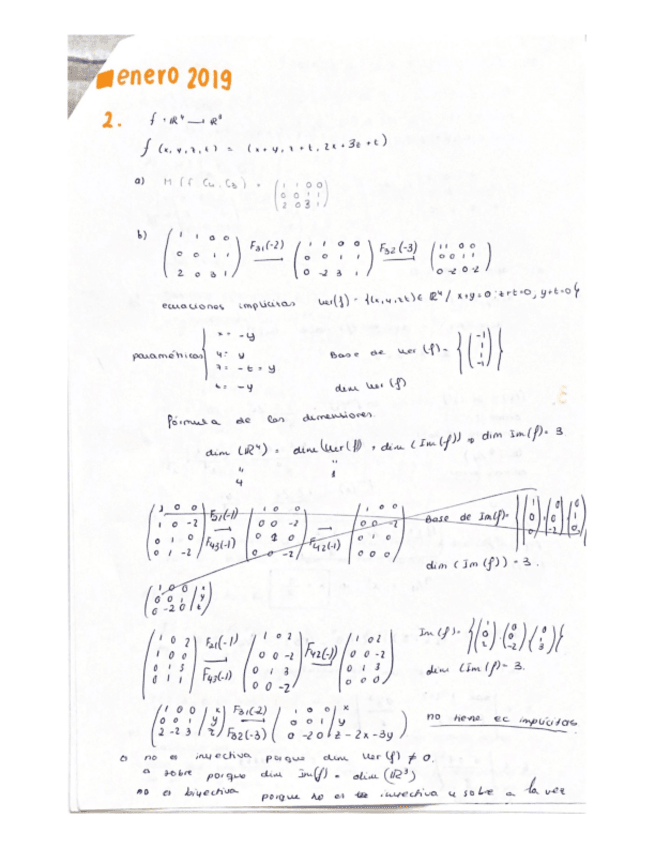 enero 2019
2. f : R⁴ → R³
f (x, y, z, t) = (x+y, z+t, 2x+3z+t)
a) M (f, Cu, C3) = (1 1 0 0
0 0 1 1
2 0 3 1)
b) (1 1 0 0 F31(-2) (1 1 0 0 F32(-3) (1 1 0 0
0 0 1 1 → 0 0 1 1 → 0 0 1 1
2 0 3 1) 0 -2 3 1) 0 -2 0 -2)
ecuaciones implícitas ker(f) = {(x,y,z,t) ∈ R⁴ / x+y=0; z+t=0, y+t=0}
paramétricas { x = -y
y = y
z = -t = y
t = -y
Base de ker (f) = {(-1
1
1
-1)}
dim ker (f)
fórmula de las dimensiones.
dim (R⁴) = dim(ker(f)) + dim (Im(f)) ⇒ dim Im(f) = 3
" "
4 1
(1 0 0 F21(-1) (1 0 0 → (1 0 0
1 0 -2 → 0 0 -2 F42(-1) 0 0 -2
0 1 0 F43(-1) 0 1 0 0 1 0
0 1 -2) 0 0 -2) 0 0 0)
Base de Im(f) = {(1 0 0), (0 0 -2), (0 1 0)}
dim (Im (f)) = 3.
(1 0 0 | x
0 0 1 | y
0 -2 0 | z)
(1 0 2 F21(-1) (1 0 2 F42(-1) (1 0 2
1 0 0 → 0 0 -2 → 0 0 -2
0 1 3 F43(-1) 0 1 3 0 1 3
0 1 1) 0 0 -2) 0 0 0)
Im (f) = {(1 0 2), (0 0 -2), (0 1 3)}
dim (Im (f) = 3.
(1 0 0 | x F31(-2) (1 0 0 | x
0 0 1 | y → 0 0 1 | y
2 -2 3 | z) F32(-3) 0 -2 0 | z-2x-3y)
no tiene ec implícitas
no es inyectiva porque dim ker (f) ≠ 0.
sobre porque dim Im(f) = dim (R³)
no es biyectiva porque no es inyectiva y sobre a la vez